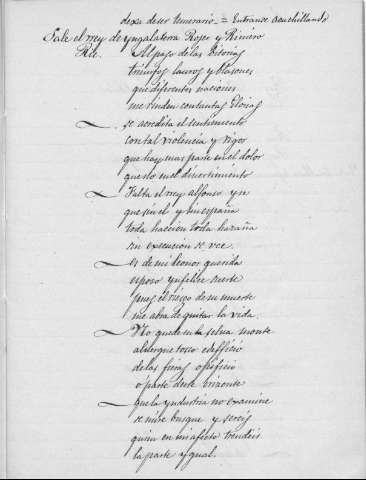 dexa de ser temerario = Entranse acuchillando
Sale el rrey de yngalaterra Roger y Riniero
Rle. Al paso de las Vitorias
triunfos lauros y blasones
que diferentes naciones
me rinden con tantas Glorias
se acredita el sentimiento
con tal violencia y rigor
que hay mas parte en el dolor
que no en el divertimiento
Falta el rrey alfonso y en
que sin el y sin españa
toda haccion toda hazaña
sin execucion se vee.
es de mi leonor querida
esposo y infelize suerte
pues el riesgo de su muerte
me abra de quitar la vida.
No quede en la selva monte
alvergue tosco edifficio
de las fieras o resquicio
o parte deste orizonte
que la yndustria no examine
se mire busque y sereis
quien en mi afecto tendreis
la parte ygual.